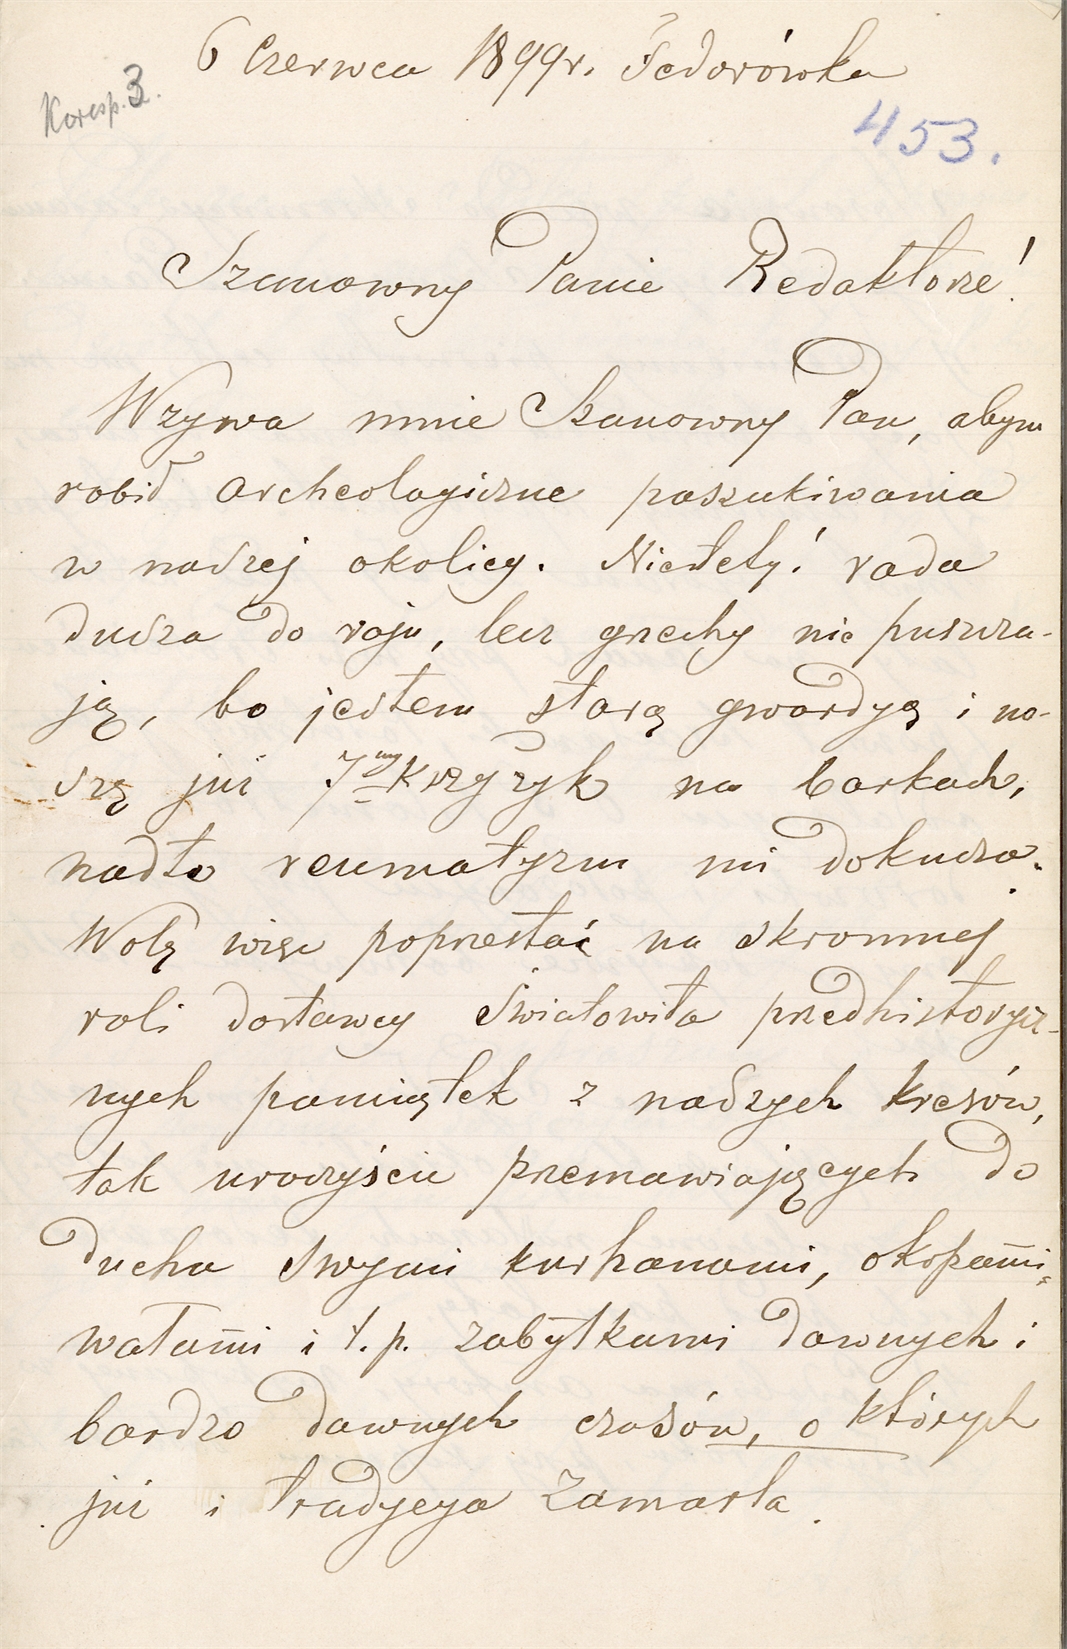 6 Czerwca 1899 r. Fedorówka
Koresp. 3.
453.
Szanowny Panie Redaktorze!
Wzywa mnie Szanowny Pan, abym
robił archeologiczne poszukiwania
w naszej okolicy. Niestety! rada
dusza do raju, lecz grzechy nie puszcza-
ją, bo jestem starą gwardyą i no-
szę już 7my krzyżyk na barkach,
nadto reumatyzm mi dokucza.
Wolę więc poprzestać na skromnej
roli dostawcy Światowita przedhistorycz-
nych pamiątek z naszych kresów,
tak uroczyście przemawiających do
ducha swymi kurhanami, okopami,
wałami i t. p. zabytkami dawnych i
bardzo dawnych czasów, o których
już i tradycya zamarła.